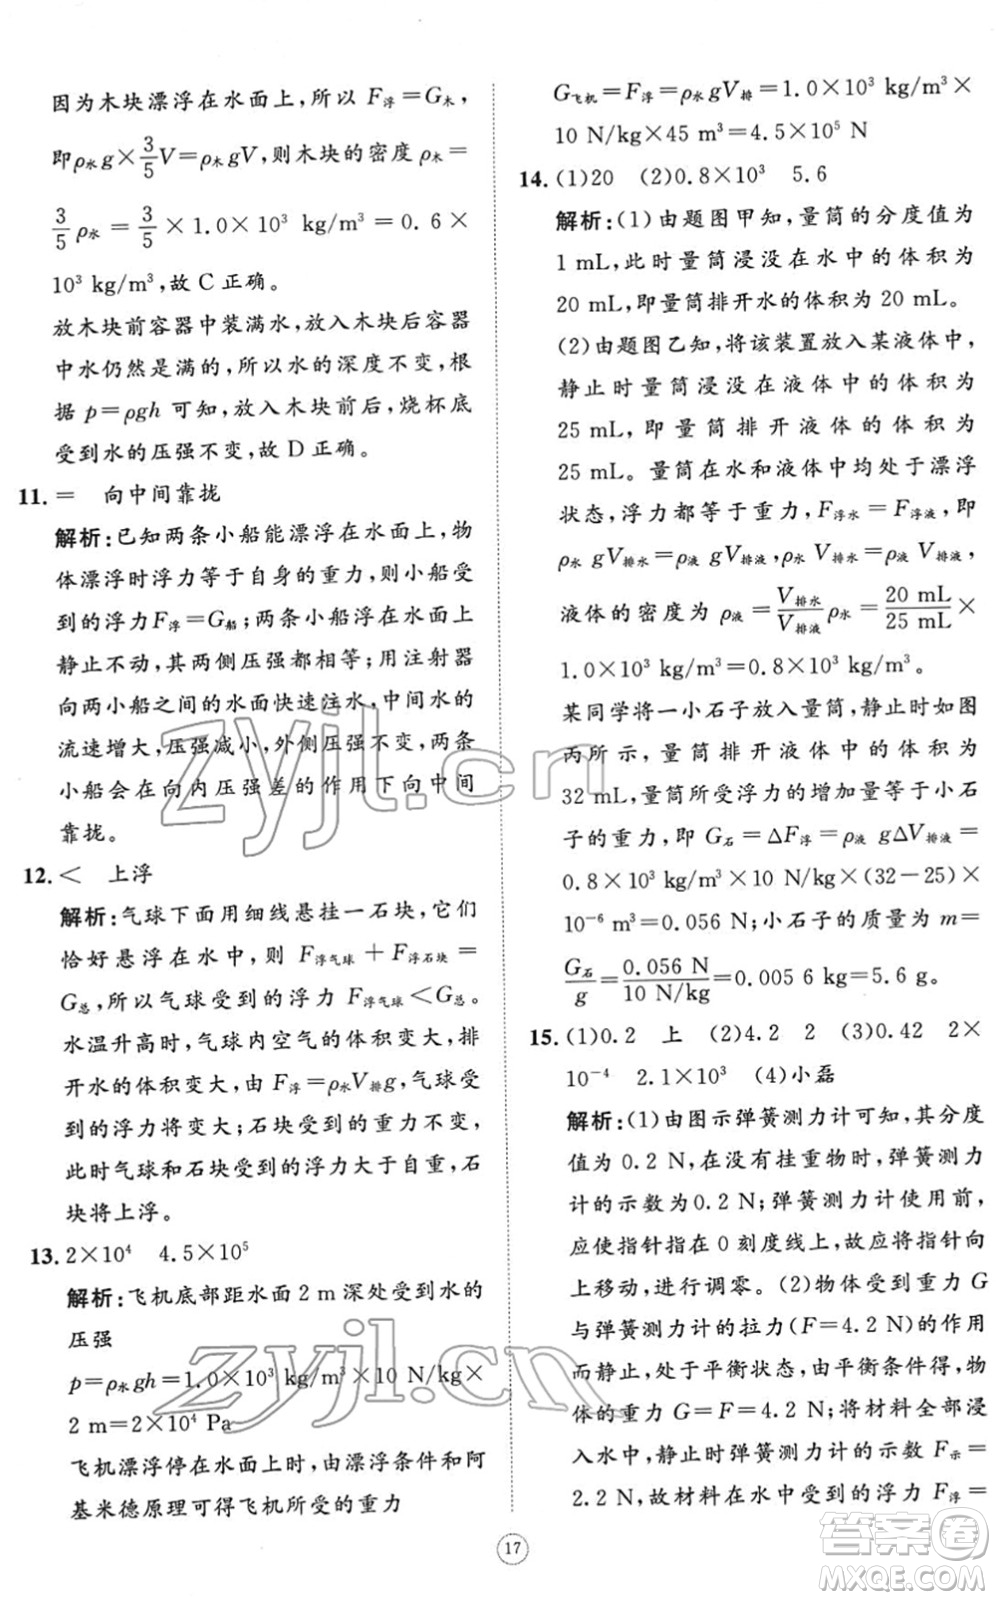 因为木块漂浮在水面上，所以 F浮＝G木，
即ρ水 g×3/5V＝ρ木 gV，则木块的密度 ρ木＝
3/5 ρ水 ＝ 3/5 ×1.0×10³ kg/m³＝0.6×
10³ kg/m³，故 C 正确。
放木块前容器中装满水，放入木块后容器
中水仍然是满的，所以水的深度不变，根
据 p＝ρgh 可知，放入木块前后，烧杯底
受到水的压强不变，故 D 正确。
11.＝　向中间靠拢
解析：已知两条小船能漂浮在水面上，物
体漂浮时浮力等于自身的重力，则小船受
到的浮力F浮＝G船；两条小船浮在水面上
静止不动，其两侧压强都相等；用注射器
向两小船之间的水面快速注水，中间水的
流速增大，压强减小，外侧压强不变，两只
小船会在向内压强差的作用下向中间
靠拢。
12.＜　上浮
解析：气球下面用细线悬挂一石块，它们
恰好悬浮在水中，则 F浮气球＋F浮石块＝
G总，所以气球受到的浮力 F浮气球＜G总。
水温升高时，气球内空气的体积变大，排
开水的体积变大，由 F浮＝ρ水V排g，气球受
到的浮力将变大；石块受到的浮力不变，
此时气球和石块受到的浮力大于自重，石
块将上浮。
13. 2×10⁴　4.5×10⁵
解析：飞机底部距水面 2 m 深处受到水的
压强
p＝ρ水 gh＝1.0×10³ kg/m³×10 N/kg×
2 m＝2×10⁴ Pa
飞机漂浮停在水面上时，由漂浮条件和阿
基米德原理可得飞机所受的重力
G飞机＝F浮＝ρ水 gV排＝1.0×10³ kg/m³×
10 N/kg×45 m³＝4.5×10⁵ N
14.(1)20　(2)0.8×10³　5.6
解析：(1)由题图甲知，量筒的分度值为
1 mL，此时量筒浸没在水中的体积为
20 mL，即量筒排开水的体积为 20 mL。
(2)由题图乙知，将该装置放入某液体中，
静止时量筒浸没在液体中的体积为
25 mL，即量筒排开液体的体积为
25 mL。量筒在水和液体中均处于漂浮
状态，浮力都等于重力，F浮水＝F浮液，即
ρ水 gV排水＝ρ液 gV排液，ρ水 V排水＝ρ液 V排液，
液体的密度为 ρ液＝V排水/V排液 ρ水＝20 mL/25 mL×
1.0×10³ kg/m³＝0.8×10³ kg/m³。
某同学将一小石子放入量筒，静止时如图
丙所示，量筒排开液体的体积为
32 mL，量筒所受浮力的增加量等于小石
子的重力，即 G石＝ΔF浮＝ρ液 gΔV排液＝
0.8×10³ kg/m³×10 N/kg×(32－25)×
10⁻⁶ m³＝0.056 N；小石子的质量为 m＝
G石/g＝0.056 N/10 N/kg＝0.005 6 kg＝5.6 g。
15.(1)0.2　上　(2)4.2　2　(3)0.42　2×
10⁻⁴　2.1×10³　(4)小磊
解析：(1)由图示弹簧测力计可知，其分度
值为 0.2 N，在没有挂重物时，弹簧测力
计的示数为0.2 N；弹簧测力计使用前，
应使指针指在 0 刻度线上，故应将指针向
上移动，进行调零。(2)物体受到重力 G
与弹簧测力计的拉力(F＝4.2 N)的作用
而静止，处于平衡状态，由平衡条件得，物
体的重力 G＝F＝4.2 N，将材料全部浸
入水中，静止时弹簧测力计的示数 F示＝
2.2 N，故材料在水中受到的浮力 F浮＝
17
zyjl.cn
zyjl.cn
答案圈
MXQE.COM